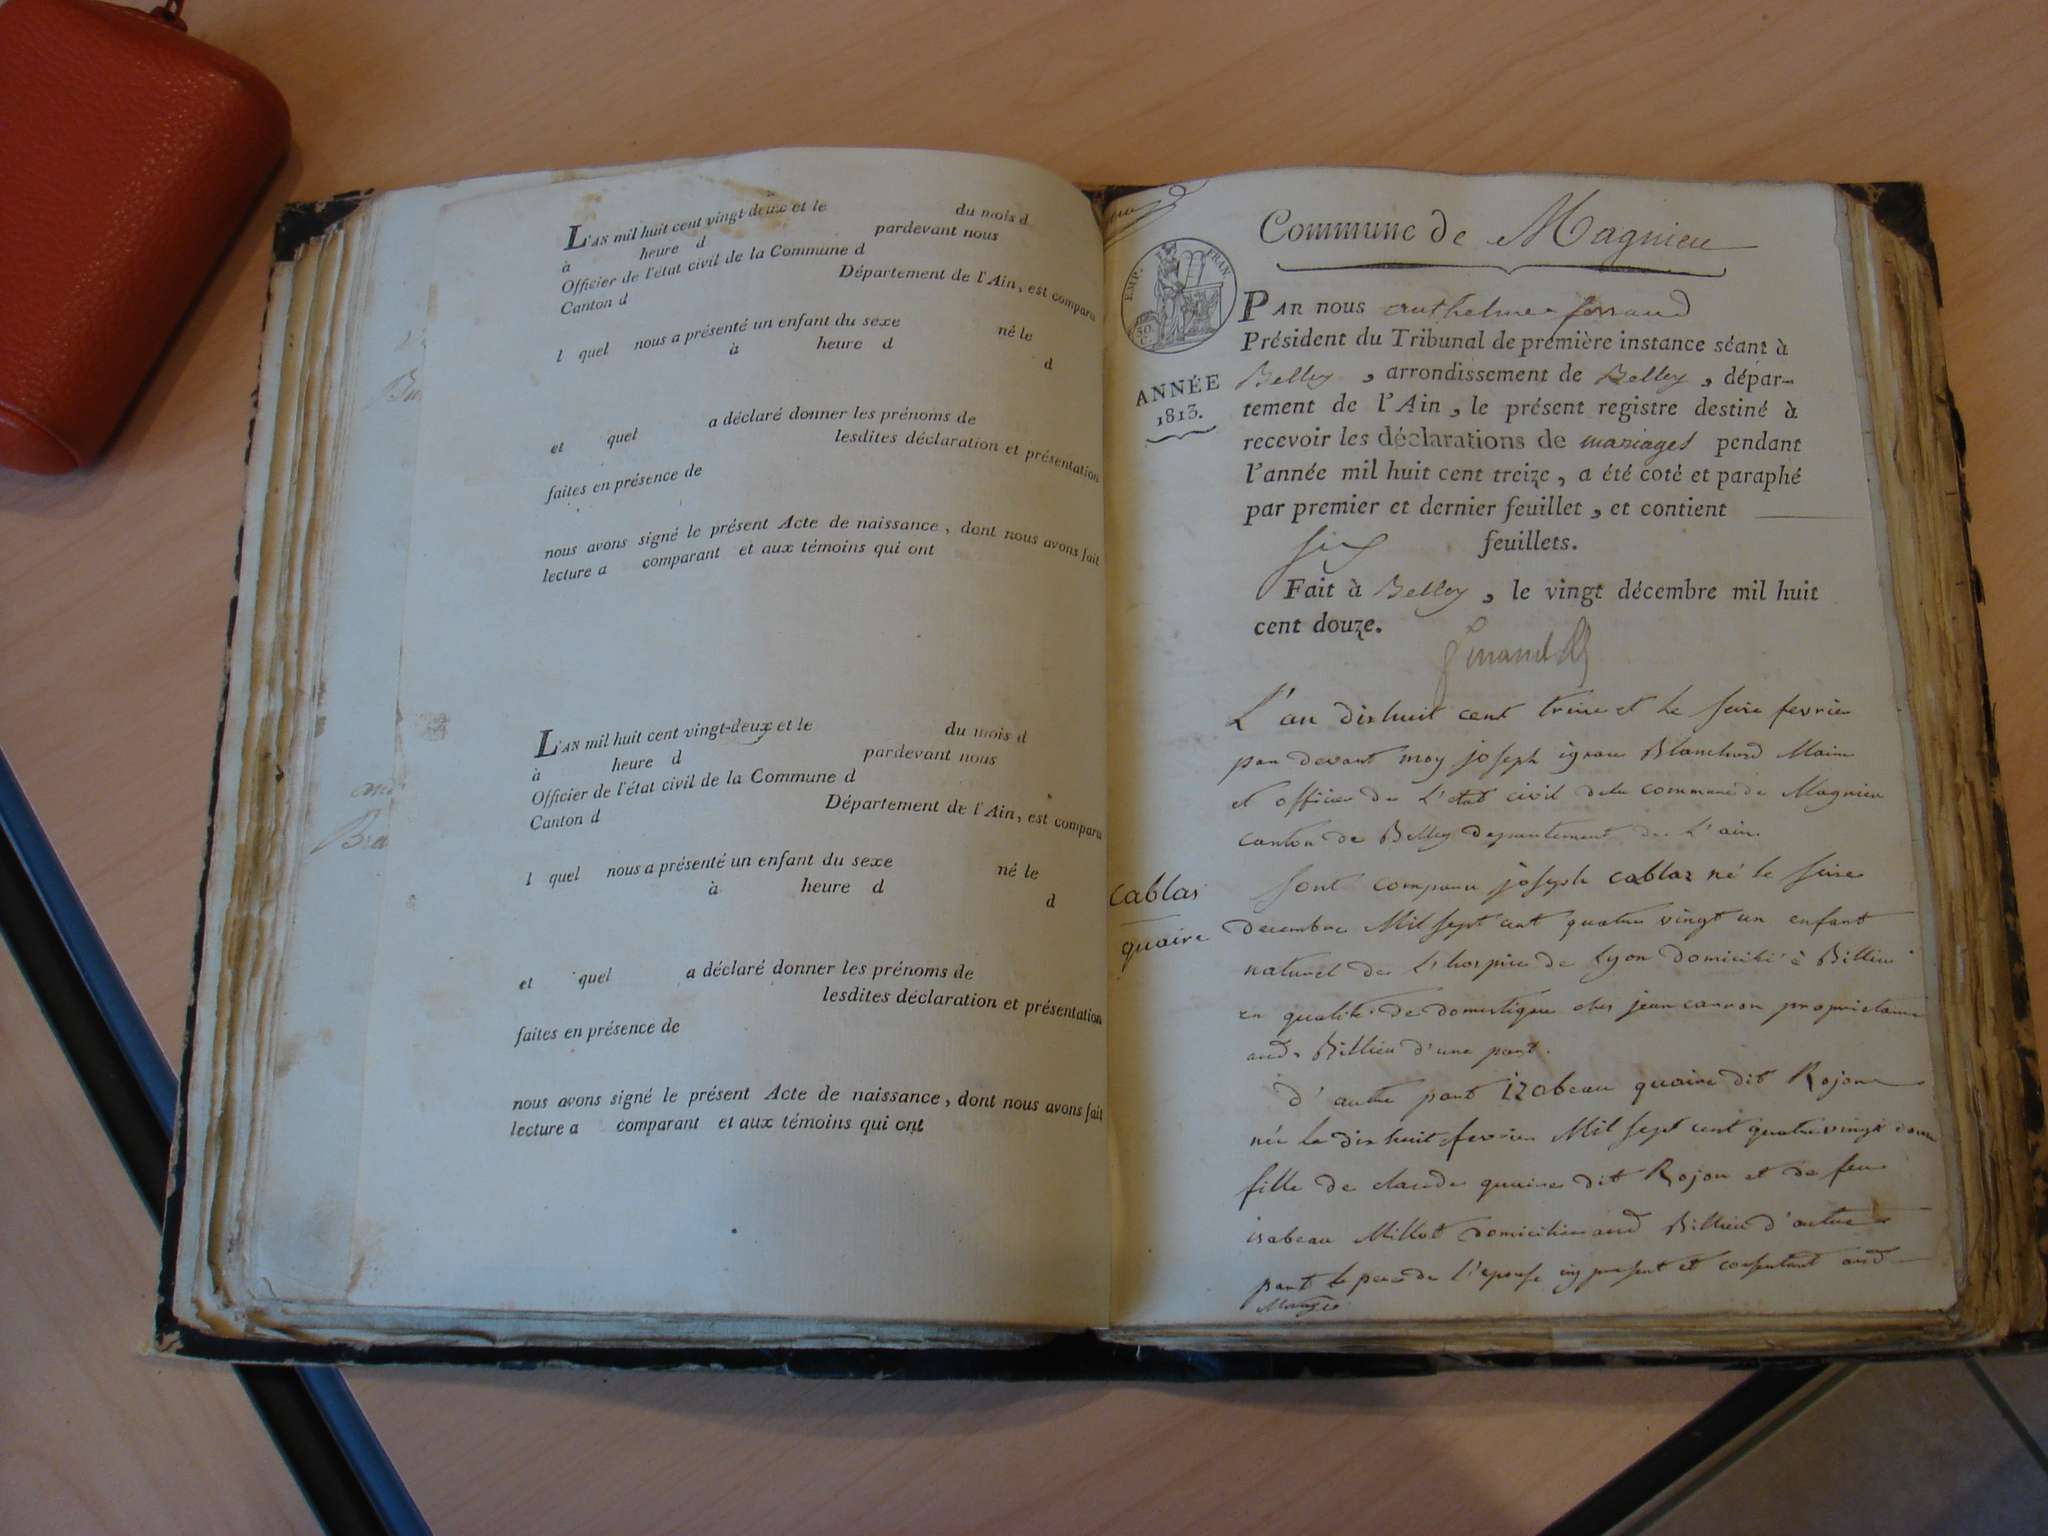 L'AN mil huit cent vingt-deux et le du mois d
à heure d pardevant nous
Officier de l'état civil de la Commune d
Canton d Département de l'Ain, est comparu
l quel nous a présenté un enfant du sexe né le
à heure d d
et quel a déclaré donner les prénoms de
lesdites déclaration et présentation
faites en présence de
nous avons signé le présent Acte de naissance, dont nous avons fait
lecture a comparant et aux témoins qui ont
L'AN mil huit cent vingt-deux et le du mois d
à heure d pardevant nous
Officier de l'état civil de la Commune d
Canton d Département de l'Ain, est comparu
l quel nous a présenté un enfant du sexe né le
à heure d d
et quel a déclaré donner les prénoms de
lesdites déclaration et présentation
faites en présence de
nous avons signé le présent Acte de naissance, dont nous avons fait
lecture a comparant et aux témoins qui ont
Commune de Magnieu
EMP. FRAN
50 C.
ANNÉE
1813.
PAR nous anthelme ferrand
Président du Tribunal de première instance séant à
Belley, arrondissement de Belley, dépar-
tement de l'Ain, le présent registre destiné à
recevoir les déclarations de mariages pendant
l'année mil huit cent treize, a été coté et paraphé
par premier et dernier feuillet, et contient
six feuillets.
Fait à Belley, le vingt décembre mil huit
cent douze.
L'an dixhuit cent treize et le seize fevrier
par devant moy joseph ignace Blanchard Maire
et officier de L'etat civil dela commune de Magnieu
canton de Belley departement de L'ain
cablas
quaire
sont comparu joseph cablaz né le seize
decembre Mil sept cent quatre vingt un enfant
naturel de L'hospice de Lyon domicilié à Billieu
en qualité de domestique ches jean carron proprietaire
aud. Billieu d'une part.
d'autre part izabeau quaire dit Rojon
née le dixhuit fevrier Mil sept cent quatre vingt douze
fille de claude quaire dit Rojon et de feu
isabeau Millot domiciliée aud Billieu d'autre
part le pere de l'epouse icy present et consentant aud
Mariage